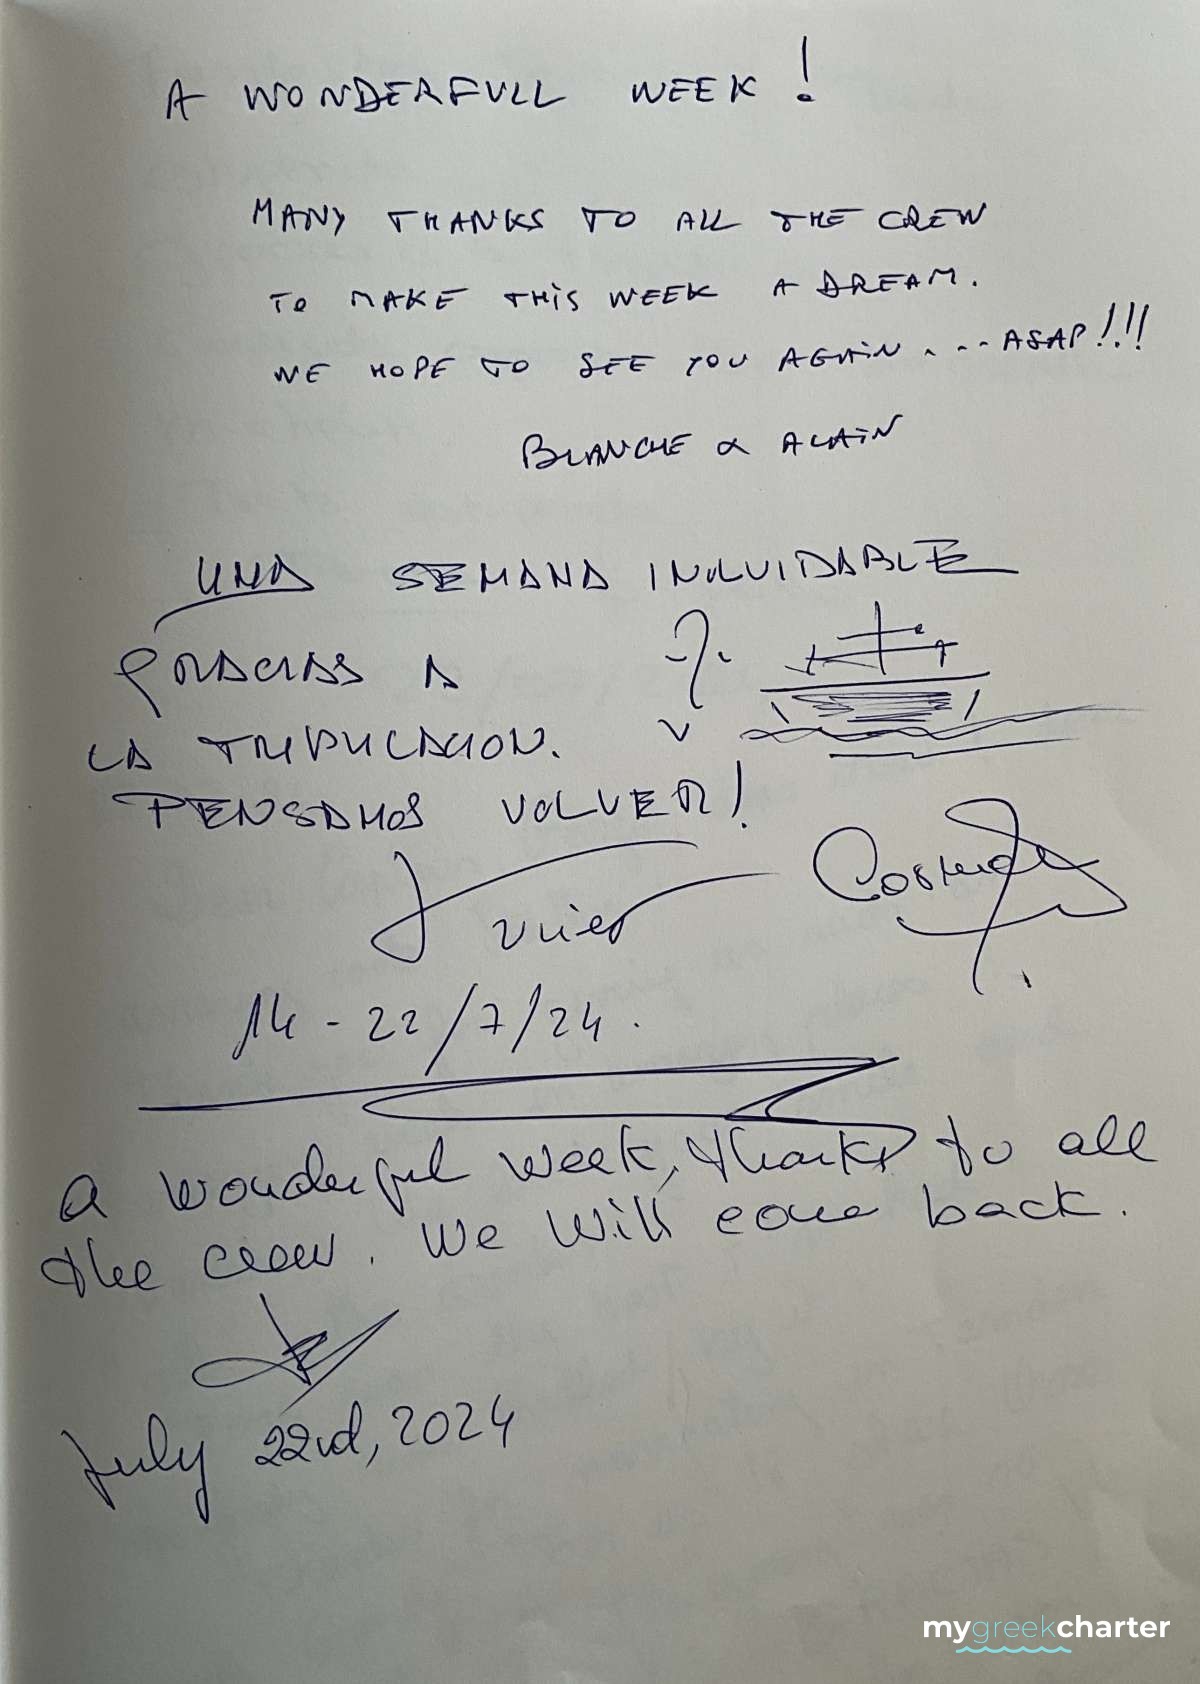 A WONDERFULL WEEK!
MANY THANKS TO ALL THE CREW
TO MAKE THIS WEEK A DREAM.
WE HOPE TO SEE YOU AGAIN....ASAP!!!!
BLANCHE & ALAIN
UNA SEMANA INOLVIDABLE
GRACIAS A
LA TRIPULACION.
PENSAMOS VOLVER!
Javier
14-22/7/24.
A wonderful week, thanks to all
the crew. We will come back.
July 22nd, 2024
mygreekcharter